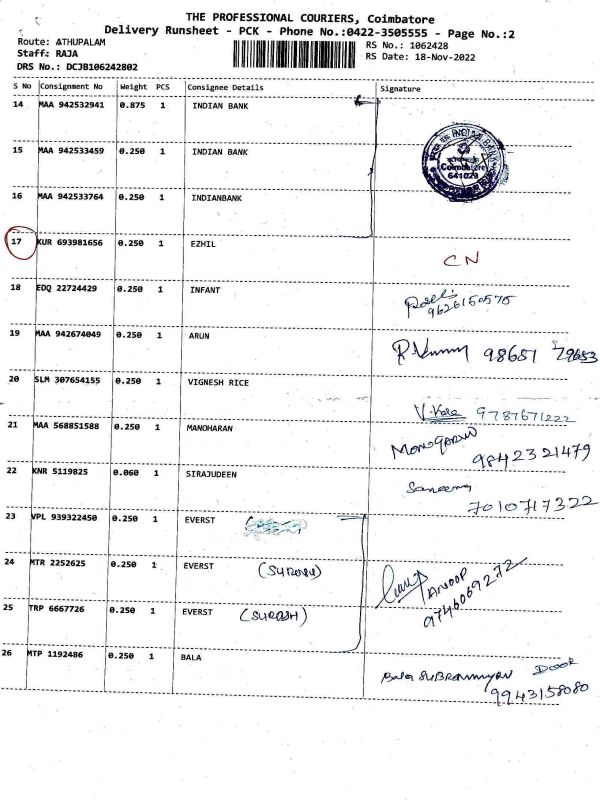 THE PROFESSIONAL COURIERS, Coimbatore
Delivery Runsheet - PCK - Phone No.:0422-3505555 - Page No.:2
Route: ATHUPALAM
RS No.: 1062428
Staff: RAJA
RS Date: 18-Nov-2022
DRS No.: DCJB106242802
S No Consignment No Weight PCS Consignee Details Signature
14 MAA 942532941 0.875 1 INDIAN BANK
15 MAA 942533459 0.250 1 INDIAN BANK
INDIAN BANK
Coimbatore
641023
16 MAA 942533764 0.250 1 INDIANBANK
17 KUR 693981656 0.250 1 EZHIL
CN
18 EDQ 22724429 0.250 1 INFANT
9626150575
19 MAA 942674049 0.250 1 ARUN
98651 79653
20 SLM 307654155 0.250 1 VIGNESH RICE
9787671222
21 MAA 568851588 0.250 1 MANOHARAN
9842321479
22 KNR 5119825 0.060 1 SIRAJUDEEN
7010717322
23 VPL 939322450 0.250 1 EVERST
24 MTR 2252625 0.250 1 EVERST
ANOOP
9746069272
25 TRP 6667726 0.250 1 EVERST (SURESH)
26 MTP 1192486 0.250 1 BALA
Door
9943158080